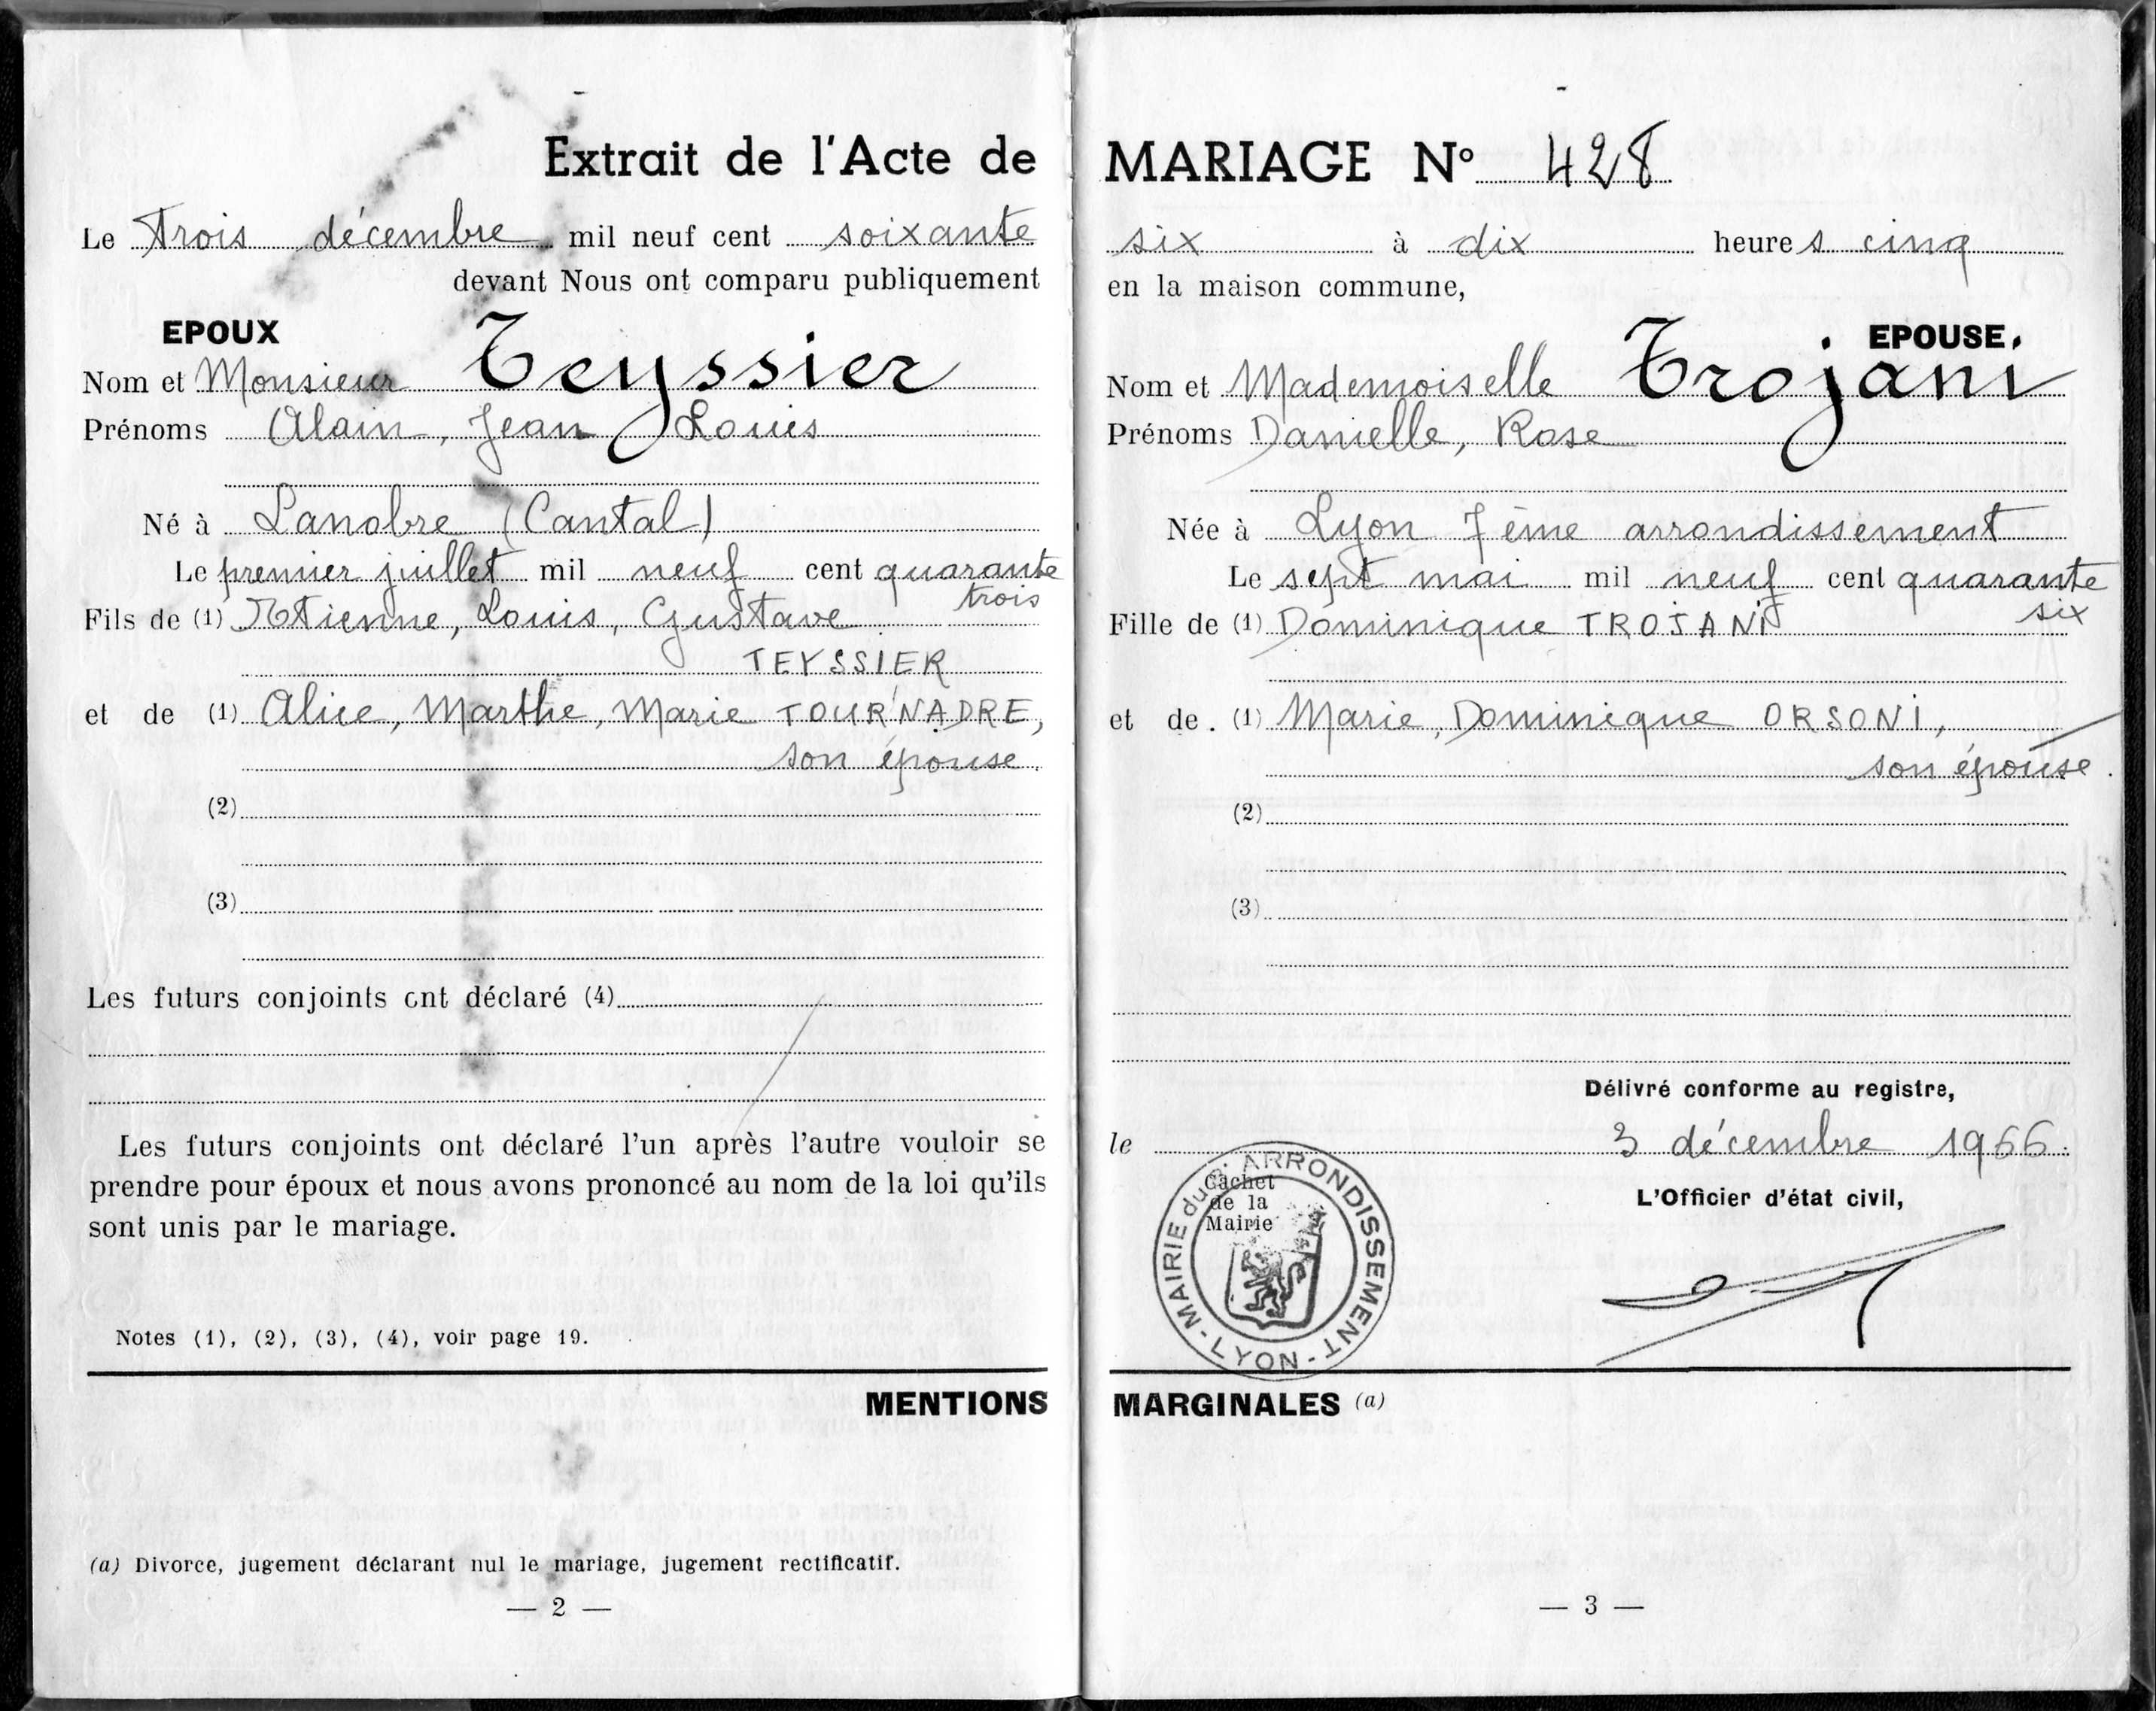 Extrait de l'Acte de
Le Trois décembre mil neuf cent soixante
devant Nous ont comparu publiquement
EPOUX
Nom et Monsieur Teyssier
Prénoms Alain, Jean Louis
Né à Lanobre (Cantal)
Le premier juillet mil neuf cent quarante
trois
Fils de (1) Etienne, Louis, Gustave
TEYSSIER
et de (1) Alice, Marthe, Marie TOURNADRE,
son épouse.
(2)
(3)
Les futurs conjoints ont déclaré (4)
Les futurs conjoints ont déclaré l'un après l'autre vouloir se
prendre pour époux et nous avons prononcé au nom de la loi qu'ils
sont unis par le mariage.
Notes (1), (2), (3), (4), voir page 19.
MENTIONS
(a) Divorce, jugement déclarant nul le mariage, jugement rectificatif.
— 2 —
MARIAGE N° 428
six à dix heures cinq
en la maison commune,
EPOUSE.
Nom et Mademoiselle Trojani
Prénoms Danielle, Rose
Née à Lyon 7ème arrondissement
Le sept mai mil neuf cent quarante
six
Fille de (1) Dominique TROJANI
et de. (1) Marie, Dominique ORSONI,
son épouse.
(2)
(3)
Délivré conforme au registre,
le 3 décembre 1966.
L'Officier d'état civil,
Cachet
de la
Mairie
MAIRIE du ARRONDISSEMENT - LYON -
MARGINALES (a)
— 3 —